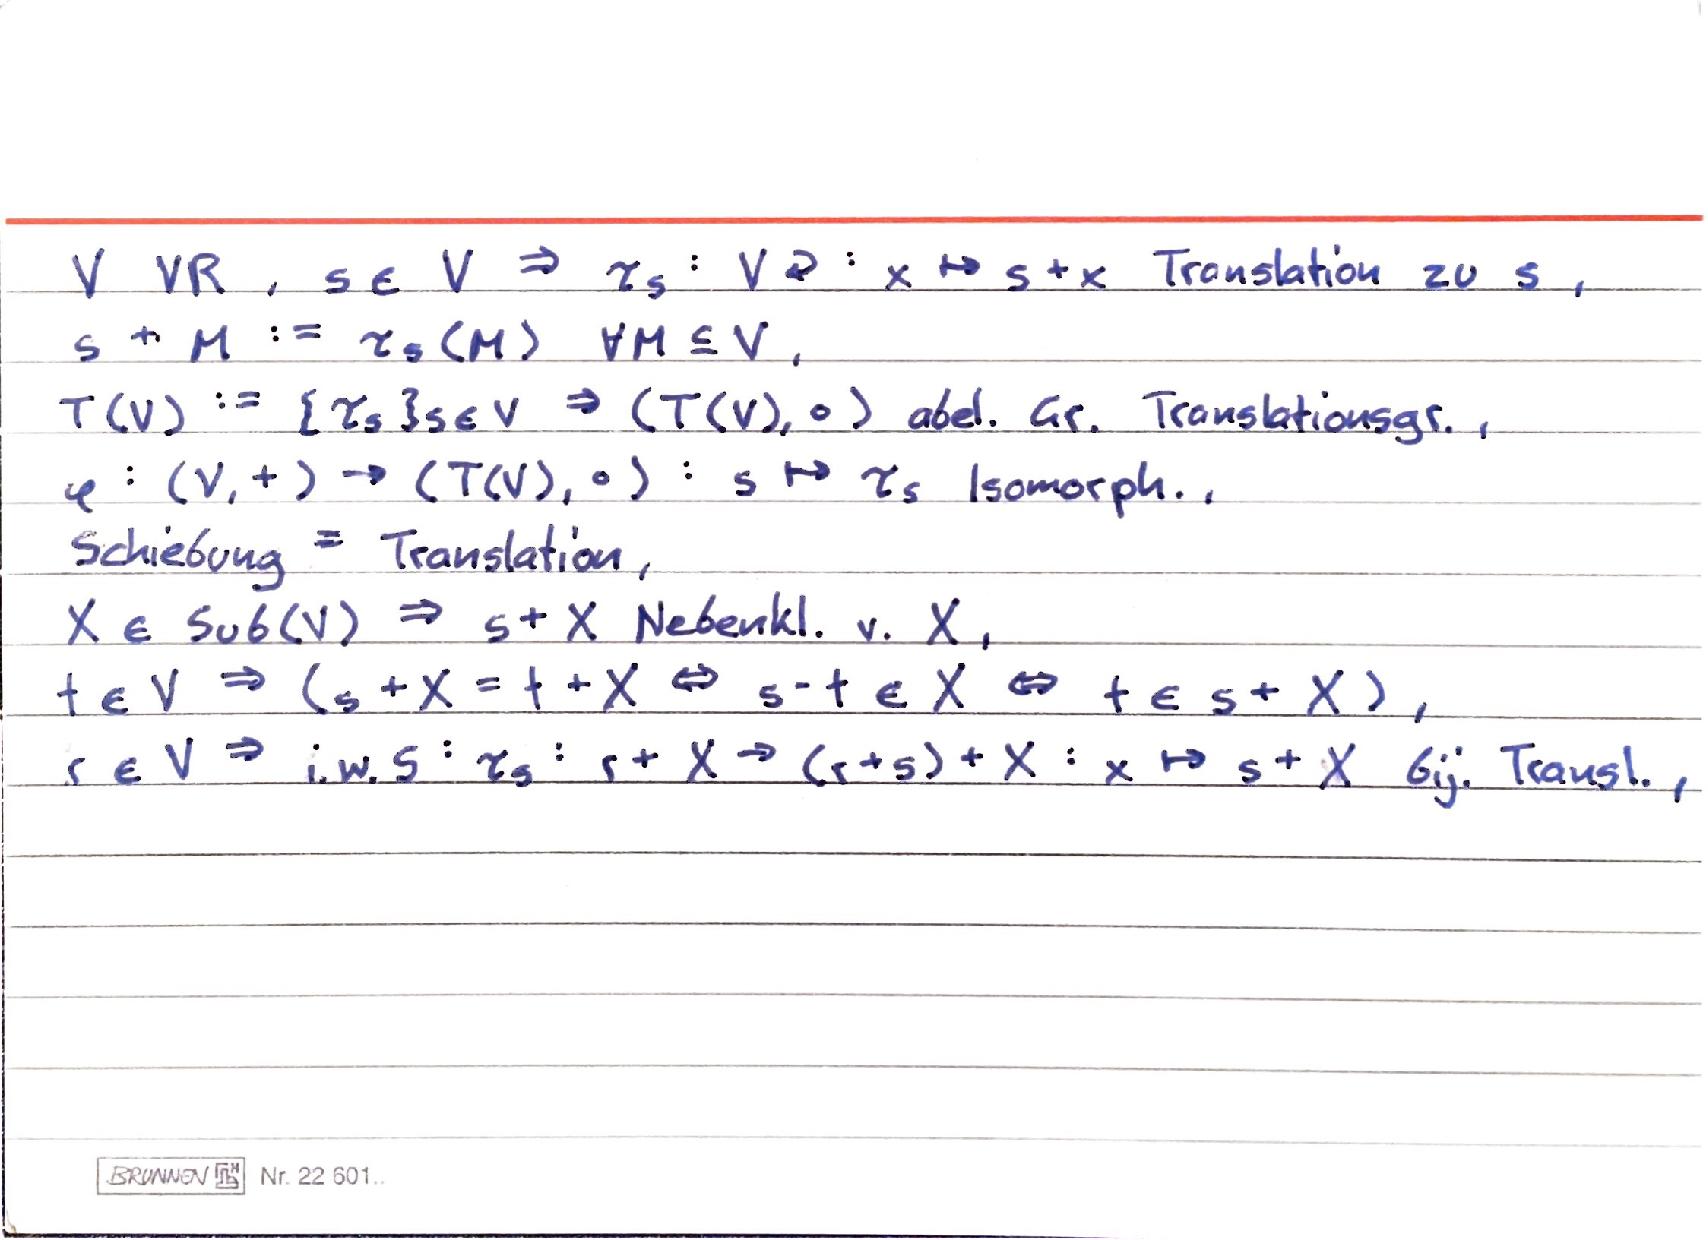 V VR, s ∈ V ⇒ τₛ : V ⟲ : x ↦ s + x Translation zu s,
s + M := τₛ(M) ∀M ⊆ V,
T(V) := {τₛ}ₛ∈V ⇒ (T(V), ∘) abel. Gr. Translationsgr.,
φ : (V, +) → (T(V), ∘) : s ↦ τₛ Isomorph.,
Schiebung = Translation,
X ∈ Sub(V) ⇒ s + X Nebenkl. v. X,
t ∈ V ⇒ (s + X = t + X ⇔ s - t ∈ X ⇔ t ∈ s + X),
r ∈ V ⇒ i.w.S : τₛ : r + X → (r + s) + X : x ↦ s + X bij. Transl.,
BRUNNEN Nr. 22 601..